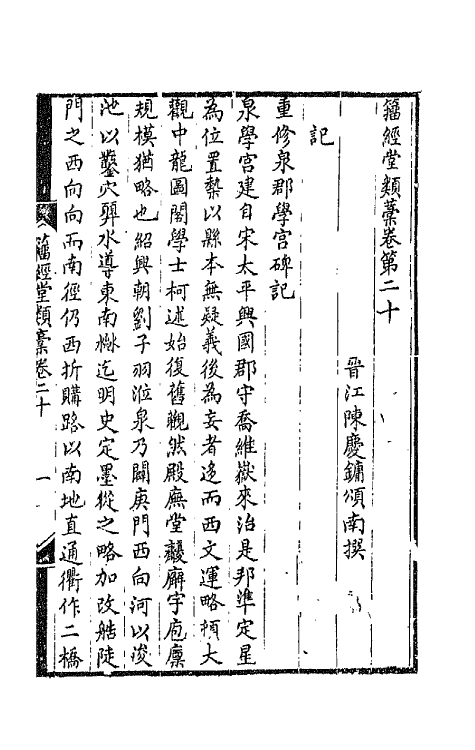 籀經堂類藁卷第二十
晉江陳慶鏞頌南撰
記
重修泉郡學宫碑記
泉學宫建自宋太平興國郡守喬維嶽來治是邦準定星
為位置槷以縣本無疑義後為妄者迻而西文運略頓大
觀中龍圖閣學士柯述始復舊觀然殿廡堂齋廨宇庖廩
規模猶略也紹興朝劉子羽涖泉乃闢庚門西向河以浚
池以鑿穴㢸水導東南𣻌迄明史定墨從之略加改㿝陡
門之西向向而南徑仍西折購路以南地直通衢作二橋
籀經堂類藁卷二十
一